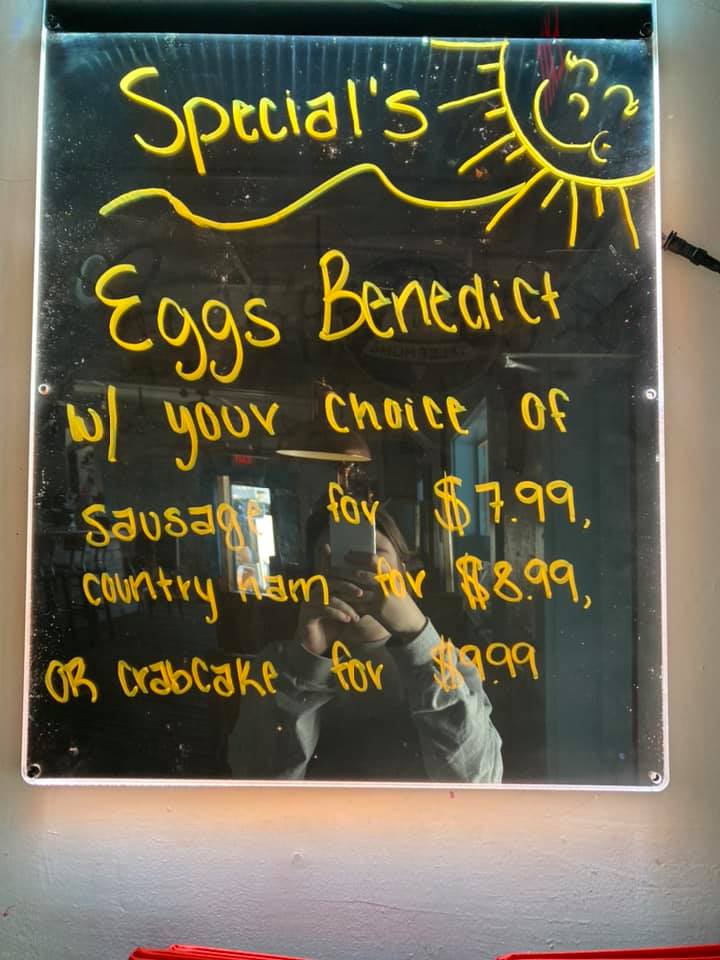 Special's
Eggs Benedict
w/ your choice of
sausage for $7.99,
country ham for $8.99,
OR crabcake for $9.99